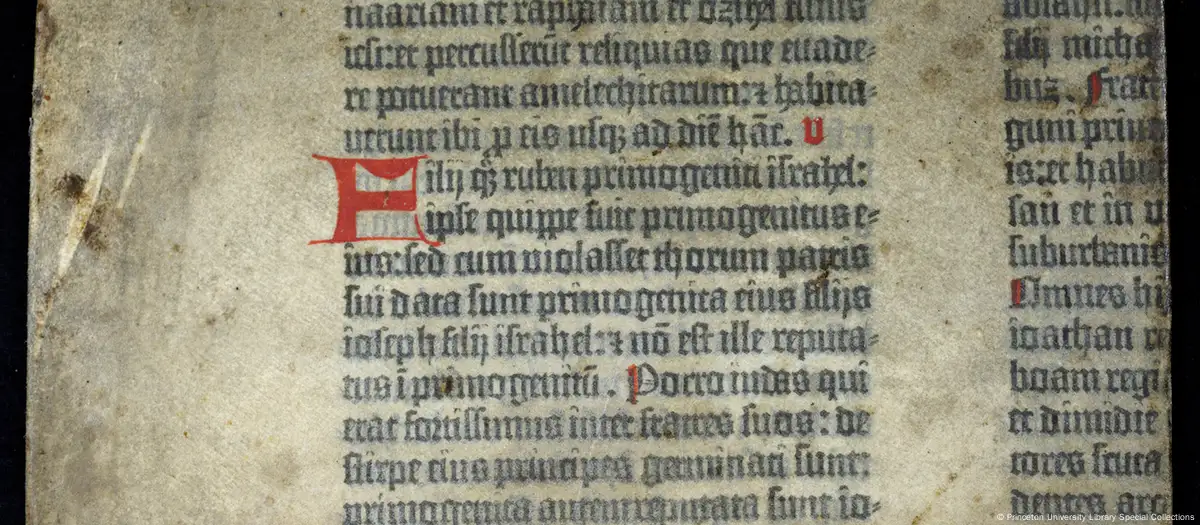 naariam et raphaiam et ozihel filios
iesi: et percusserūt reliquias que euade-
re potuerant amelechitarum: ⁊ habita-
uerunt ibi p̱ eis usqꝫ ad diē hāc. V
Filij qꝫ ruben primogeniti israhel:
ipse quippe fuit primogenitus e-
ius: sed cum violasset thorum patris
sui data sunt primogenita eius filijs
ioseph filij israhel: ⁊ nō est ille reputa-
tus ī primogenitū. Porro iudas qui
erat fortissimus inter fratres suos: de
stirpe eius principes germinati sunt:
primogenita autem reputata sunt io-
filij micha
buz. Fratr
guni prin
is: et habi
san et in v
suburbanis
Omnes hi
ioathan re
boam regi
et dimidie
tores scuta
dentes arc
© Princeton University Library Special Collections